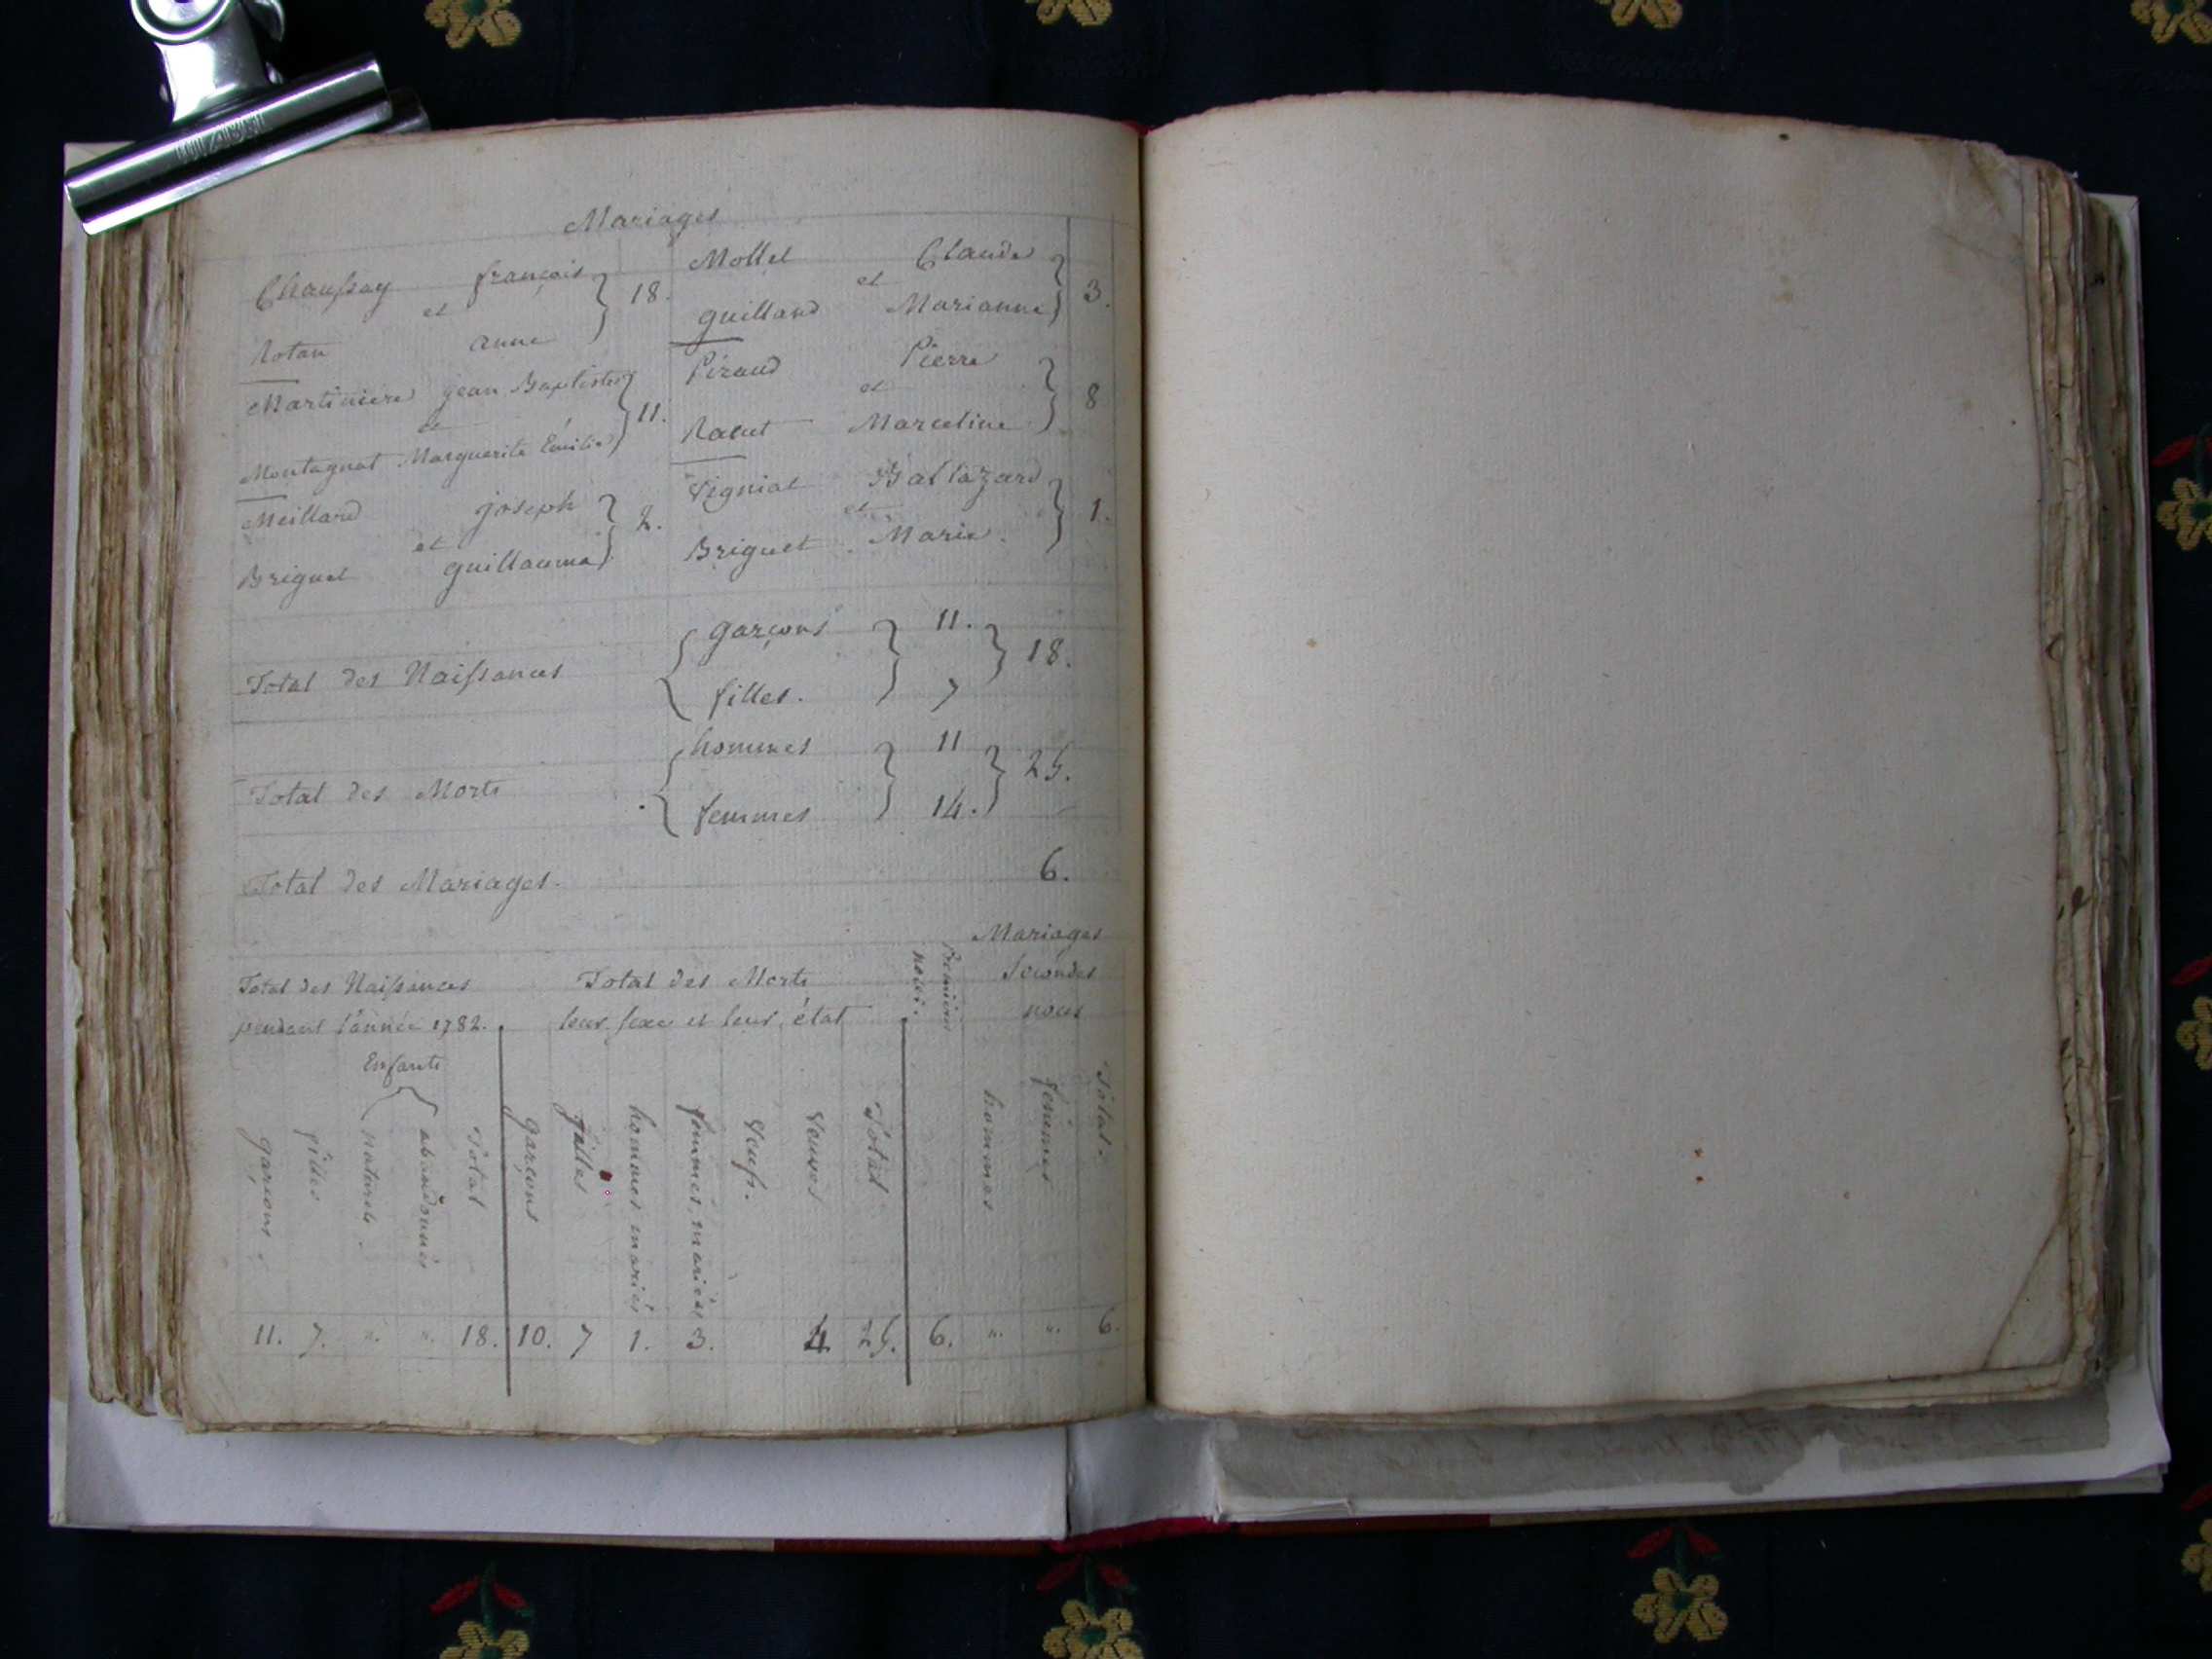 Mariages
Chaussay françois
et
18.
Rotan anne
Martiniere jean Baptiste
et
11.
Montagnat Marguerite Emilie
Meillard joseph
et
2.
Briguet guillauma
Mollet Claude
et
3.
guillard Marianne
Piraud Pierre
et
8
Racut Marceline
Vigniat Baltazard
et
1.
Briguet Marie.
garçons 11.
Total des Naissances 18.
filles. 7
hommes 11
Total des Morts 25.
femmes 14.
Total des Mariages. 6.
Total des Naissances
pendant l'année 1782.
Total des Morts
leur sexe et leur état
Mariages
Premieres
noces.
Secondes
noces
Enfants
garçons.
filles
naturels.
abandonnés
Total
garçons
filles
hommes mariés
femmes mariées
Veufs.
Veuves
Total
hommes
femmes
Total.
11. 7. ". ". 18. 10. 7 1. 3. 4 25. 6. ". ". 6.